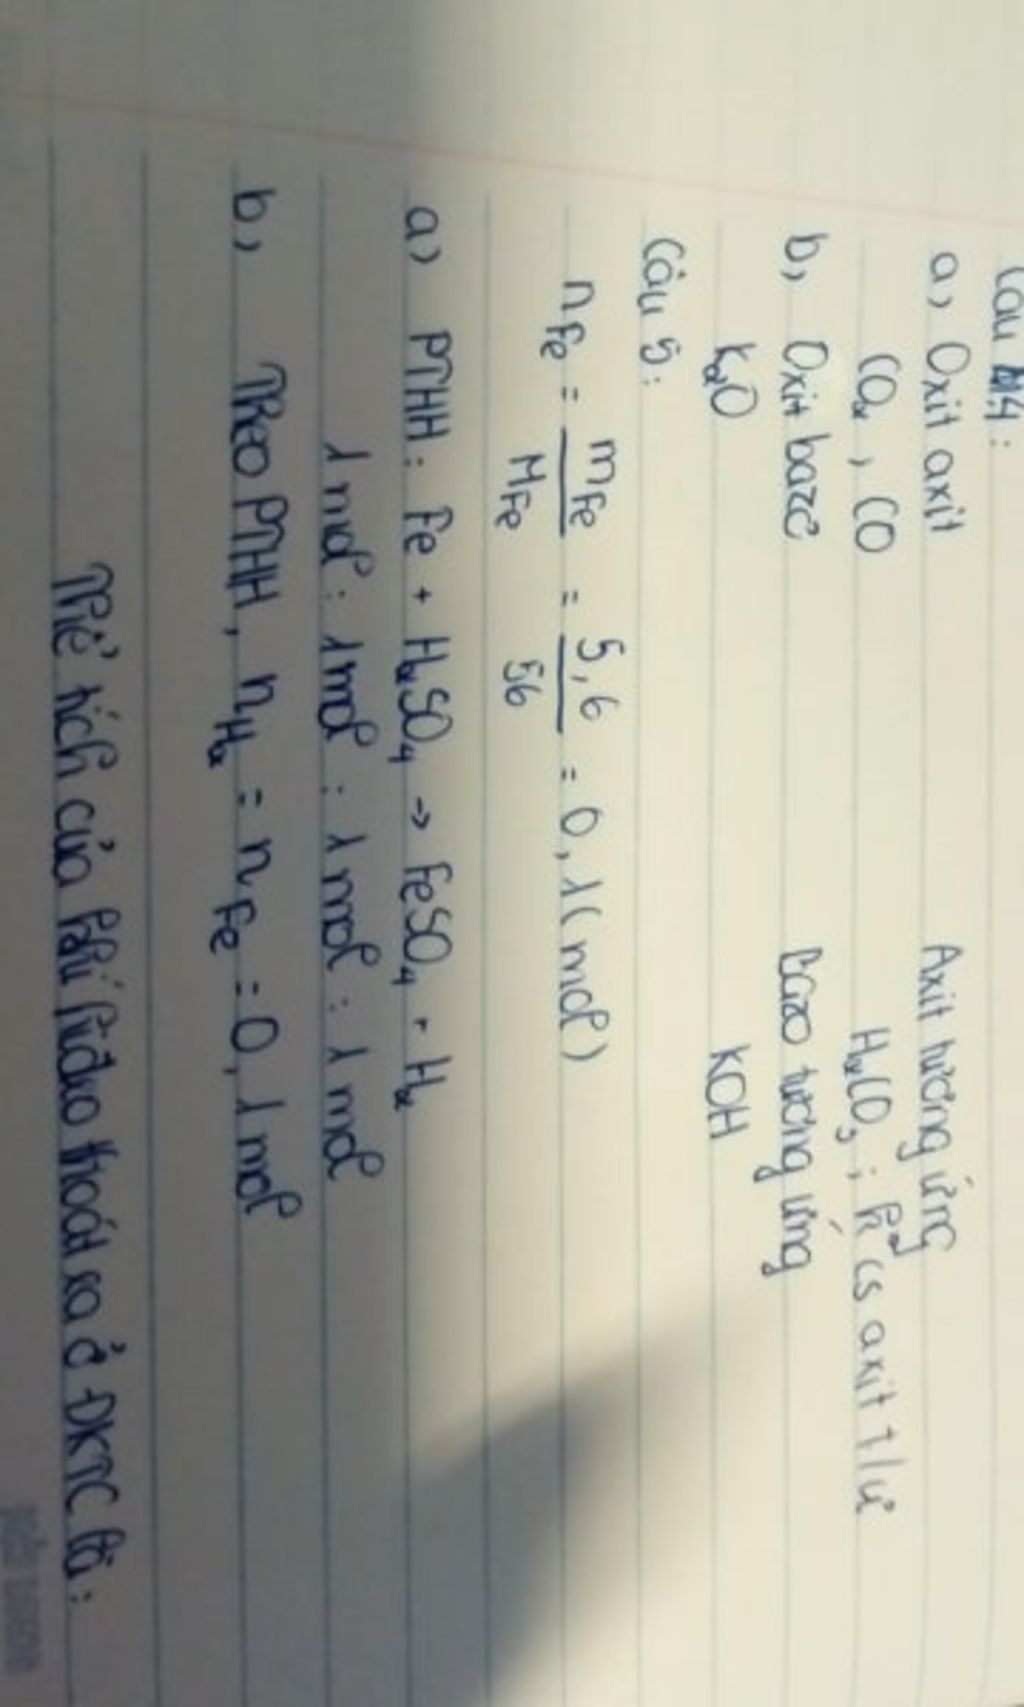 Câu 4:
a, Oxit axit Axit tương ứng
CO₂, CO H₂CO₃; k° cs axit t/ư
b, Oxit bazơ Bazo tương ứng
K₂O KOH
Câu 5:
nFe = mFe / MFe = 5,6 / 56 = 0,1 (mol)
a) PTHH: Fe + H₂SO₄ → FeSO₄ + H₂
1 mol : 1 mol : 1 mol : 1 mol
b, Theo PTHH, nH₂ = nFe = 0,1 mol
Thể tích của khí hiđro thoát ra ở ĐKTC là: